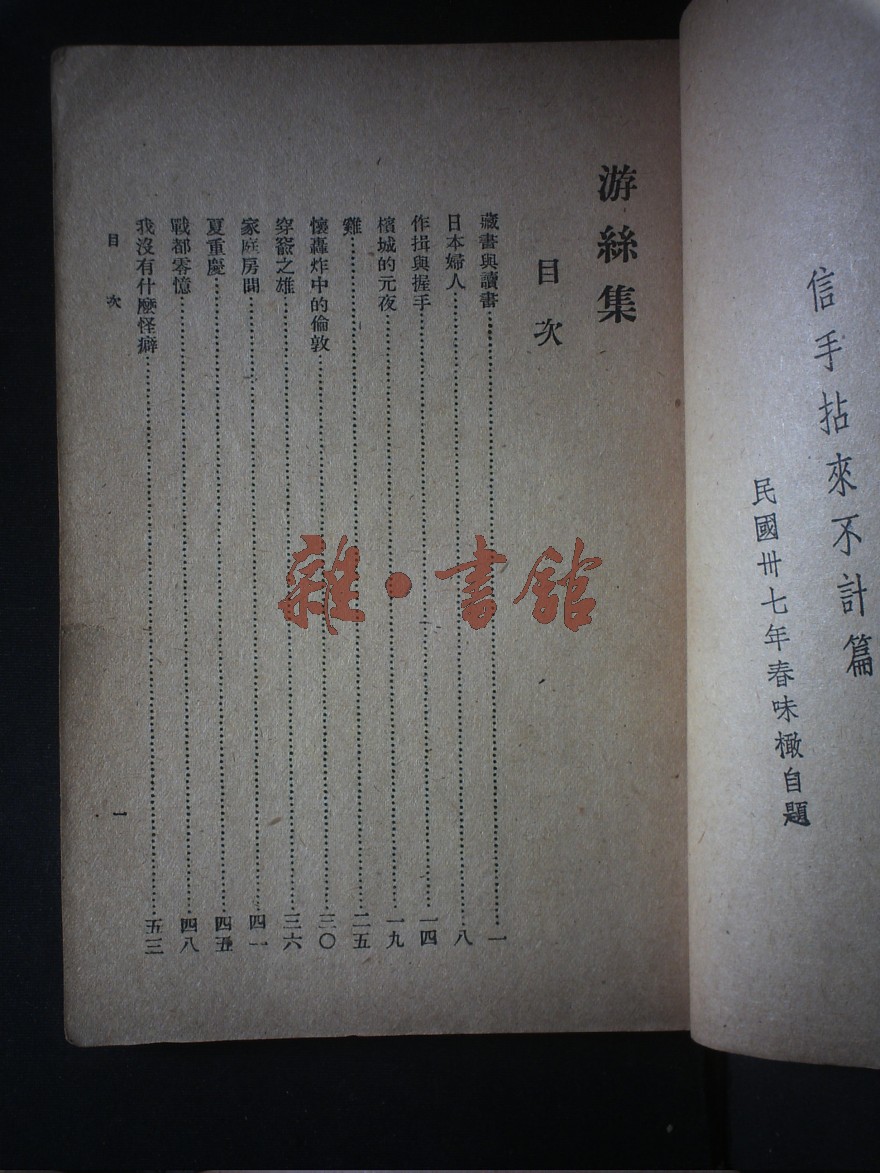 信手拈來不計篇
民國卅七年春味橄自題
游絲集
目次
藏書與讀書 一
日本婦人 八
作揖與握手 一四
檳城的元夜 一九
雞 二五
懷轟炸中的倫敦 三〇
穿窬之雄 三六
家庭房間 四一
夏重慶 四五
戰都零憶 四八
我沒有什麼怪癖 五三
目次 一
雜·書館